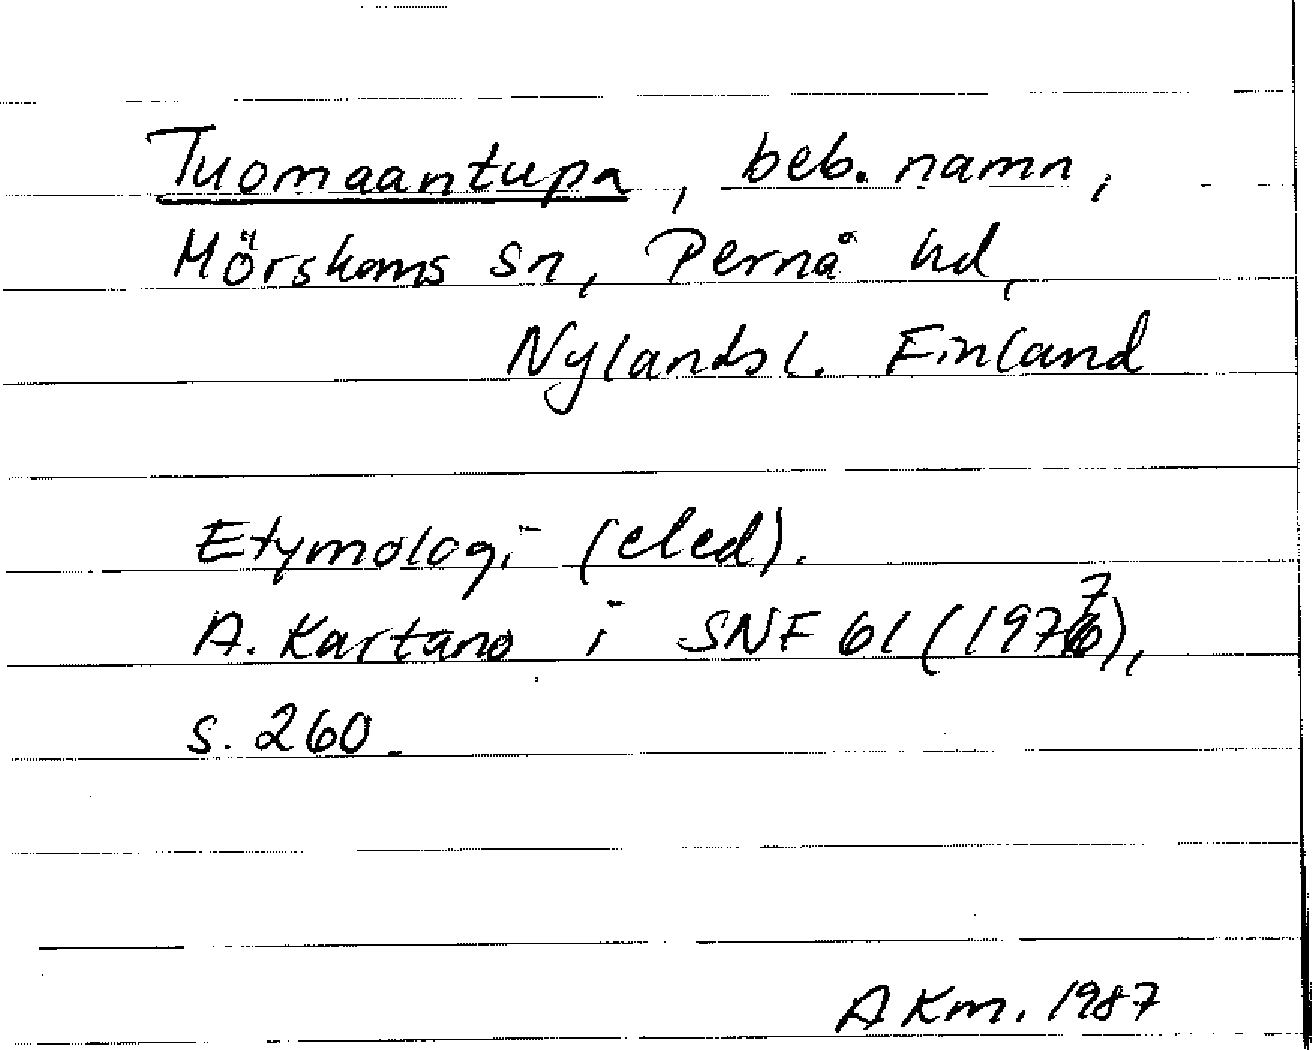 Tuomaantupa, beb. namn,
Mörskoms sn, Pernå hd,
Nylands l. Finland
Etymologi (eled).
A. Kartano i SNF 61 (1977),
s. 260.
AKm. 1987